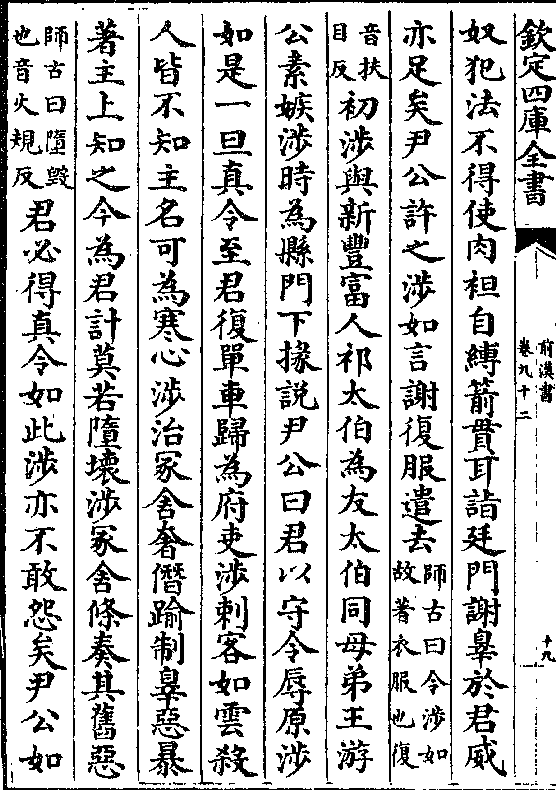 欽定四庫全書
前漢書
卷九十二
十九
奴犯法不得使肉袒自縛箭貫耳詣廷門謝辠於君威
亦足矣尹公許之涉如言謝復服遣去師古曰令涉如故著衣服也復
音扶目反初涉與新豐富人祁太伯為友太伯同母弟王游
公素嫉涉時為縣門下掾說尹公曰君以守令辱原涉
如是一旦真令至君復單車歸為府吏涉刺客如雲殺
人皆不知主名可為寒心涉治冢舍奢僭踰制辠惡暴
著主上知之今為君計莫若墮壞涉冢舍條奏其舊惡
師古曰墮毀也音火規反君必得真令如此涉亦不敢怨矣尹公如